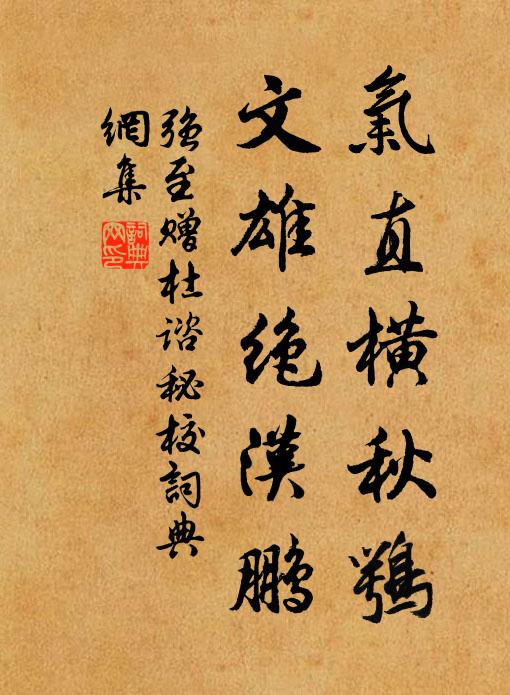 氣直橫秋鶚
文雄絶漢鵬
强至贈杜諮秘校詞典
網集
詞典
网印